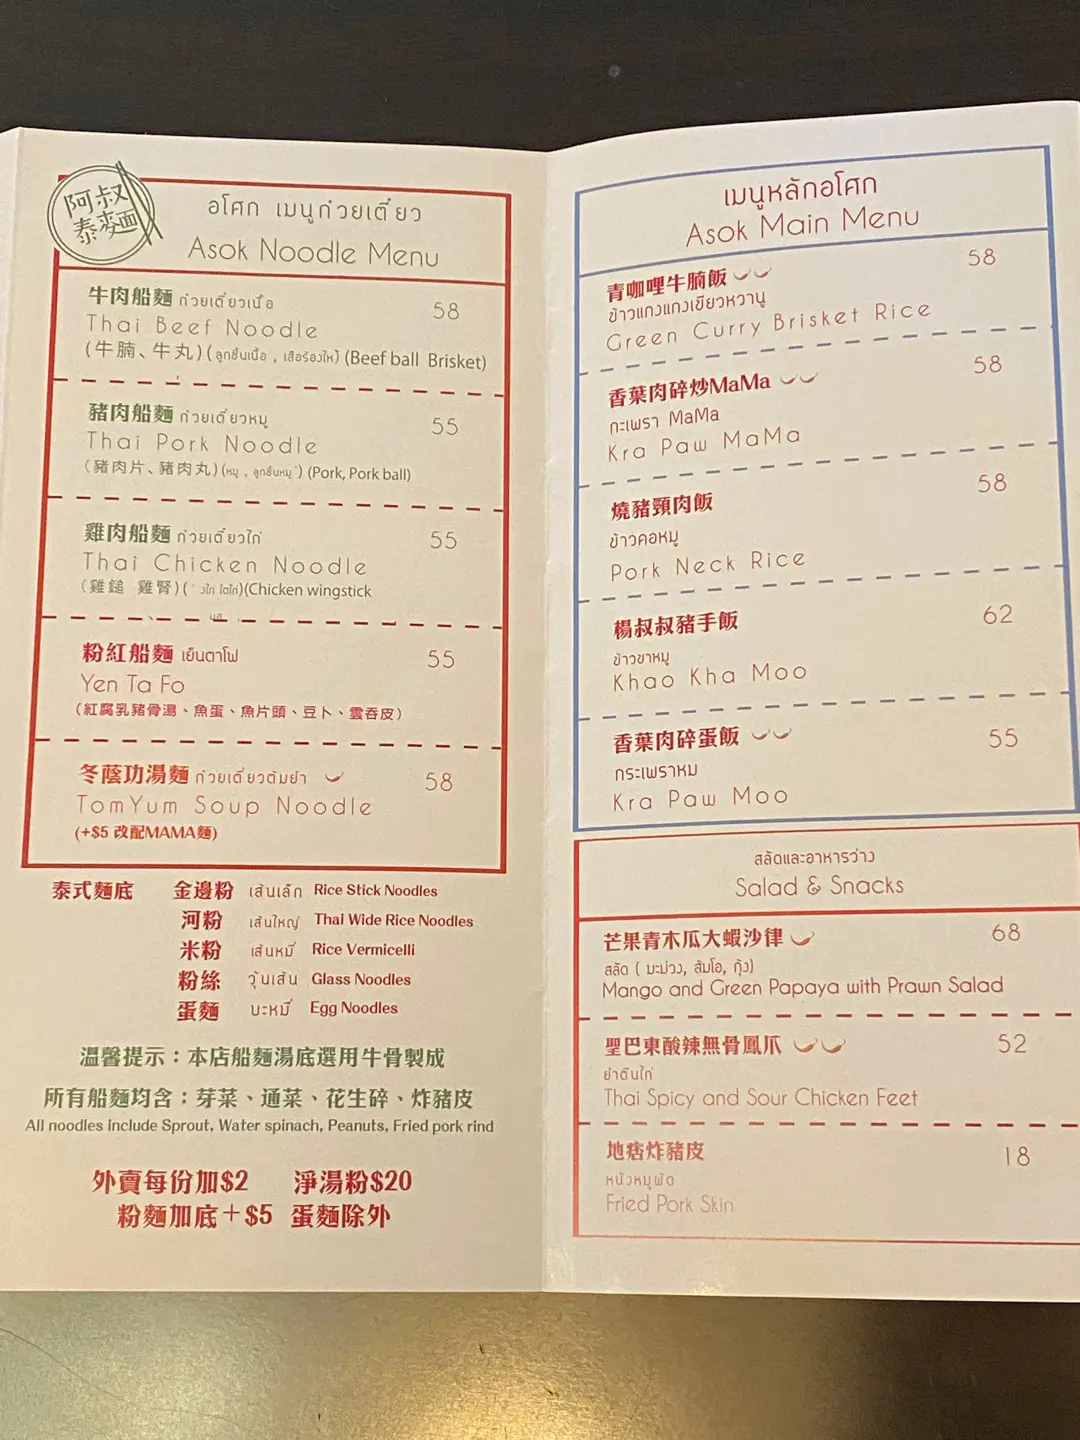 阿叔
泰麵
อโศก เมนูก๋วยเตี๋ยว
Asok Noodle Menu
牛肉船麵 ก๋วยเตี๋ยวเนื้อ 58
Thai Beef Noodle
(牛腩、牛丸) (ลูกชิ้นเนื้อ , เสือร้องไห้) (Beef ball Brisket)
豬肉船麵 ก๋วยเตี๋ยวหมู 55
Thai Pork Noodle
(豬肉片、豬肉丸) (หมู , ลูกชิ้นหมู) (Pork, Pork ball)
雞肉船麵 ก๋วยเตี๋ยวไก่ 55
Thai Chicken Noodle
(雞鎚 雞腎) (Chicken wingstick
粉紅船麵 เย็นตาโฟ 55
Yen Ta Fo
(紅腐乳豬骨湯、魚蛋、魚片頭、豆卜、雲吞皮)
冬蔭功湯麵 ก๋วยเตี๋ยวต้มยำ 58
TomYum Soup Noodle
(+$5 改配MAMA麵)
泰式麵底 金邊粉 เส้นเล็ก Rice Stick Noodles
河粉 เส้นใหญ่ Thai Wide Rice Noodles
米粉 เส้นหมี่ Rice Vermicelli
粉絲 วุ้นเส้น Glass Noodles
蛋麵 บะหมี่ Egg Noodles
溫馨提示：本店船麵湯底選用牛骨製成
所有船麵均含：芽菜、通菜、花生碎、炸豬皮
All noodles include Sprout, Water spinach, Peanuts, Fried pork rind
外賣每份加$2 淨湯粉$20
粉麵加底＋$5 蛋麵除外
เมนูหลักอโศก
Asok Main Menu
青咖哩牛腩飯 58
ข้าวแกงแกงเขียวหวานู
Green Curry Brisket Rice
香葉肉碎炒MaMa 58
กะเพรา MaMa
Kra Paw MaMa
燒豬頸肉飯 58
ข้าวคอหมู
Pork Neck Rice
楊叔叔豬手飯 62
ข้าวขาหมู
Khao Kha Moo
香葉肉碎蛋飯 55
กระเพราหม
Kra Paw Moo
สลัดและอาหารว่าง
Salad & Snacks
芒果青木瓜大蝦沙律 68
สลัด ( มะม่วง, ส้มโอ, กุ้ง)
Mango and Green Papaya with Prawn Salad
聖巴東酸辣無骨鳳爪 52
ยำตีนไก่
Thai Spicy and Sour Chicken Feet
地痞炸豬皮 18
หนังหมูผัด
Fried Pork Skin